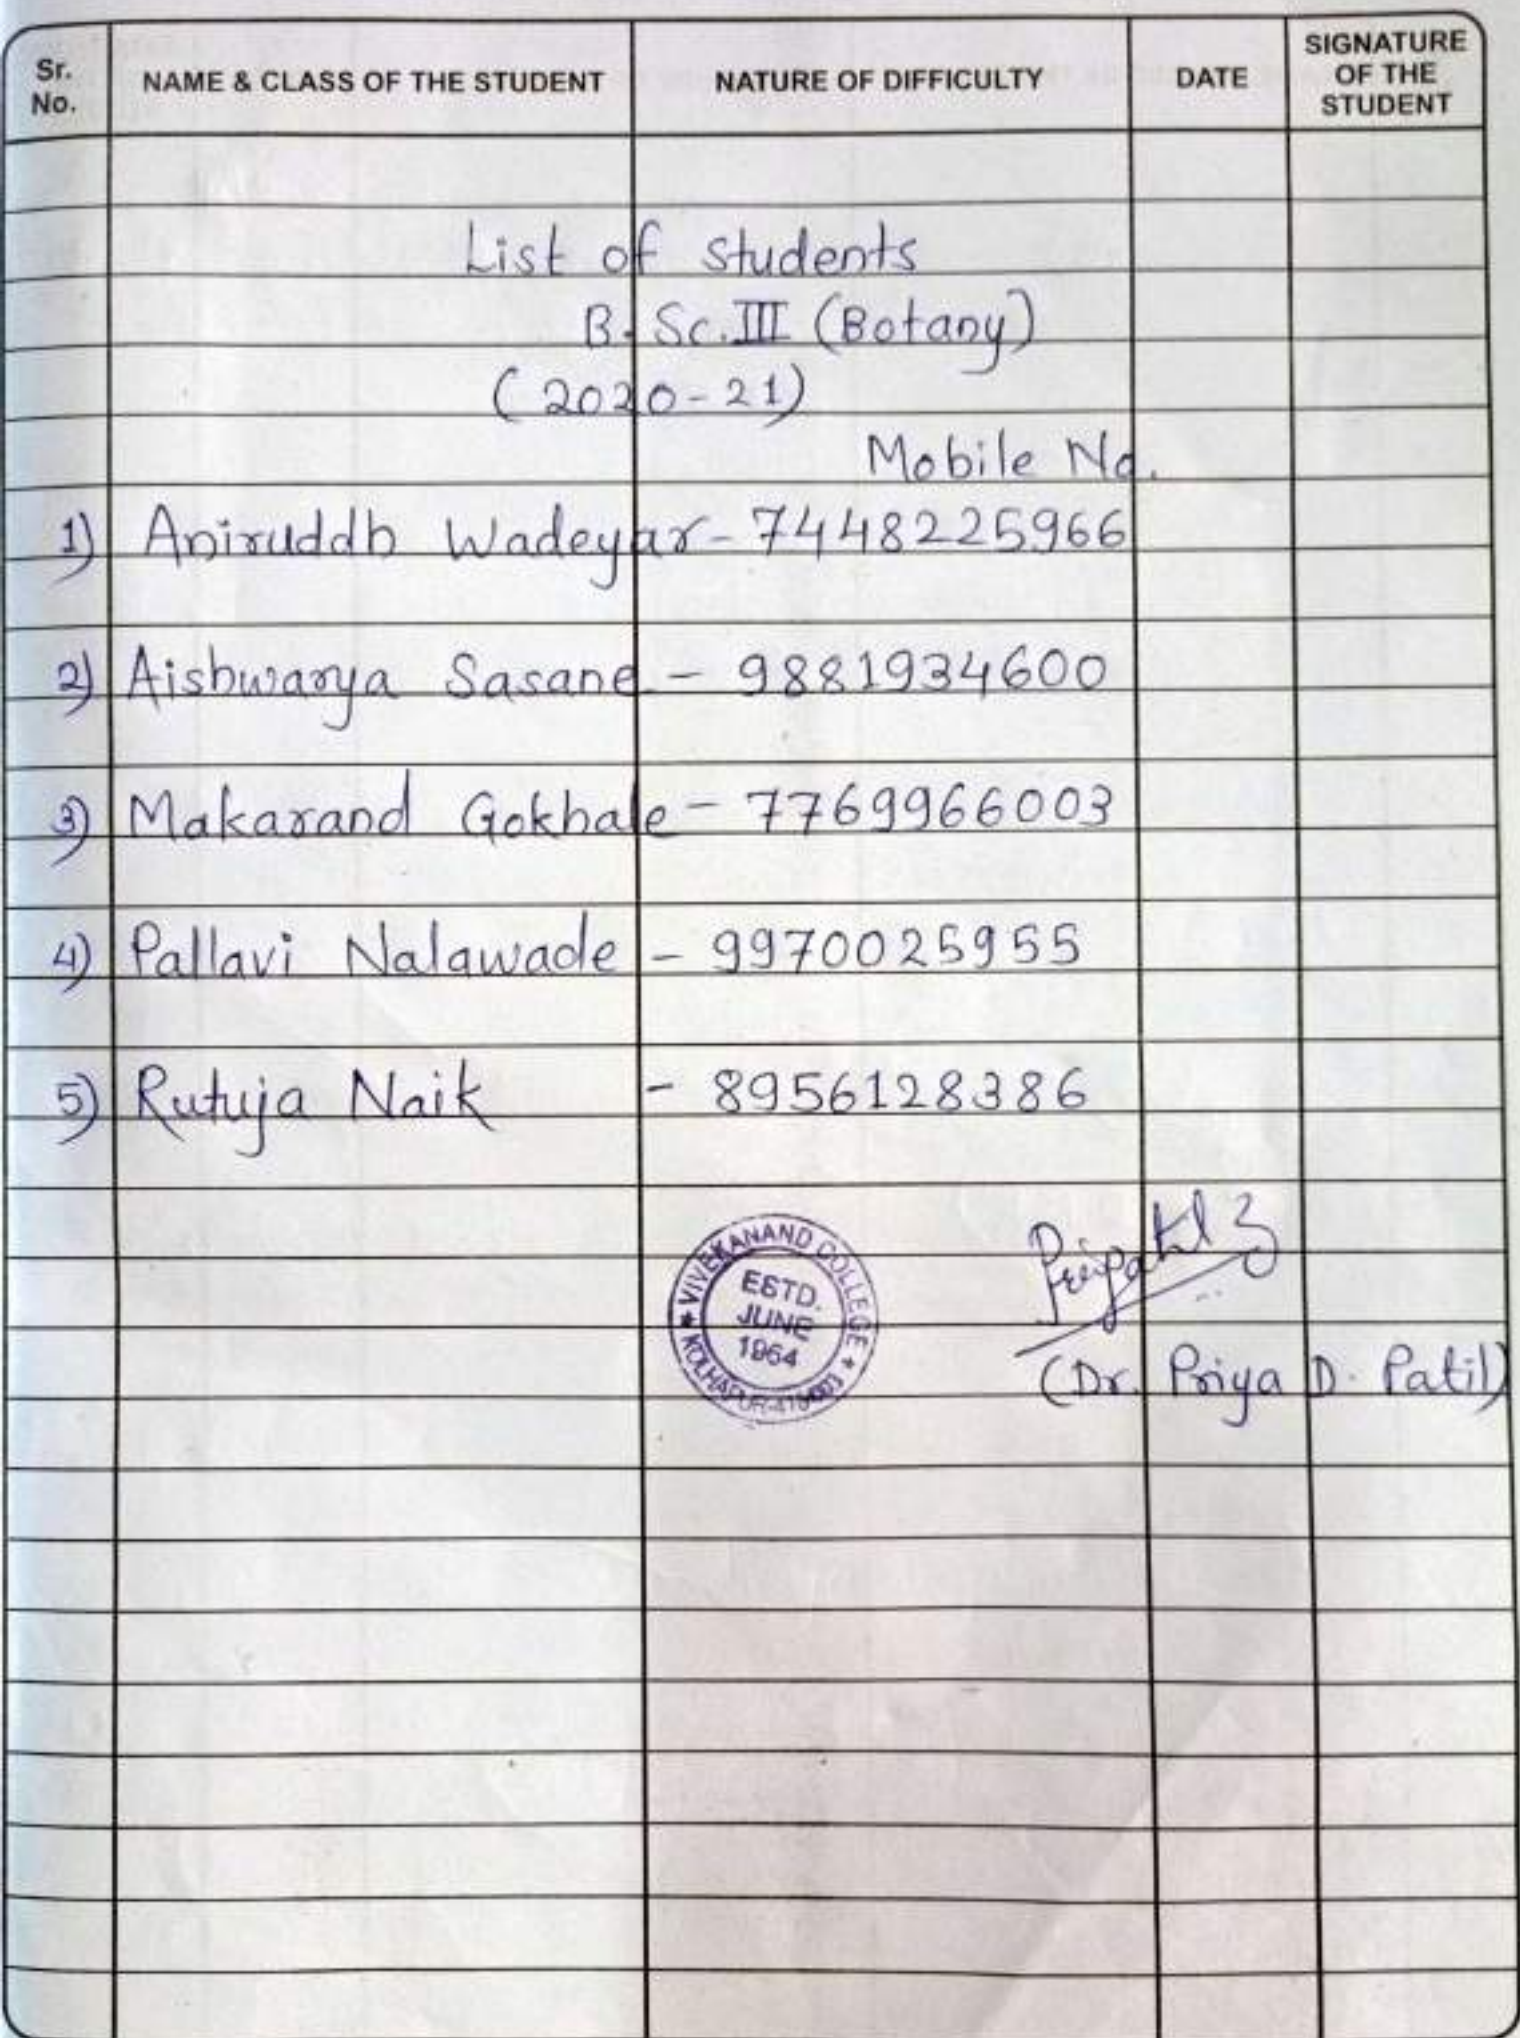 Sr. No.
NAME & CLASS OF THE STUDENT
NATURE OF DIFFICULTY
DATE
SIGNATURE OF THE STUDENT
List of students
B.Sc.III (Botany)
(2020-21)
Mobile No.
1) Aniruddh Wadeyar - 7448225966
2) Aishwarya Sasane - 9881934600
3) Makarand Gokhale - 7769966003
4) Pallavi Nalawade - 9970025955
5) Rutuja Naik - 8956128386
VIVEKANAND COLLEGE
ESTD.
JUNE
1964
(Dr. Priya D. Patil)